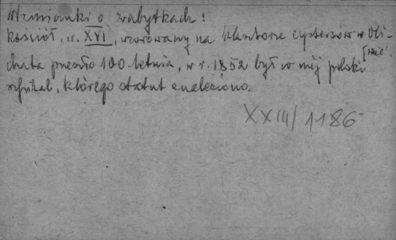 Wzmianki o zabytkach:
kościół, w. XVI, wzorowany na klasztorze cystersów w Oli-
wie
chata przeszło 100-letnia, w r. 1852 był w niej polski
szpital, którego statut znaleziono.
XXIII/1186